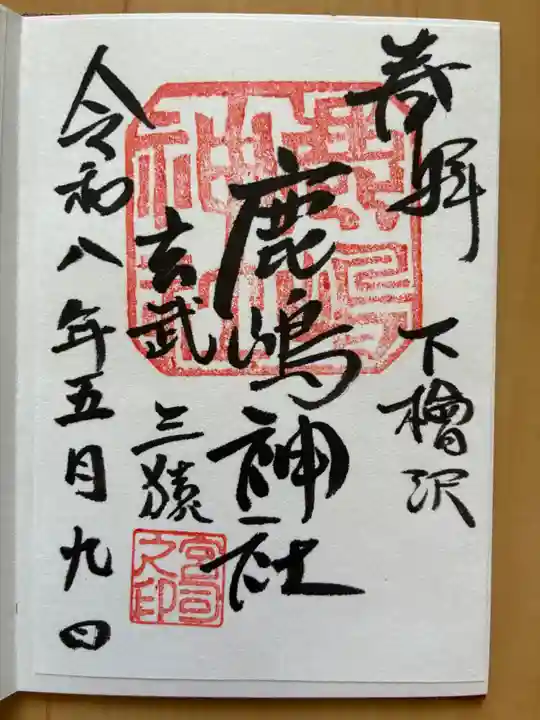 奉拝
下檜沢
鹿嶋神社
玄武
三猿
宮司之印
令和八年五月九日